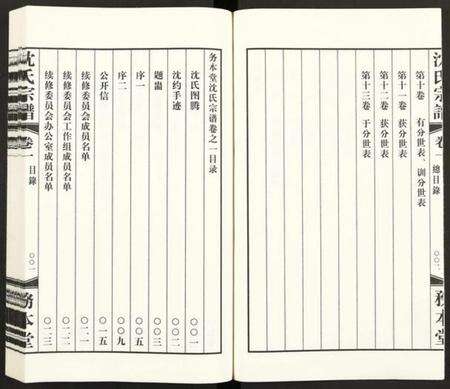 沈氏宗譜
卷一
總目錄
〇〇二
務本堂
第十卷 有分世表、训分世表
第十一卷 获分世表
第十二卷 获分世表
第十三卷 于分世表
务本堂沈氏宗谱卷之一目录
沈氏图腾 〇〇一
沈约手迹 〇〇二
题
序一 〇〇五
序二 〇〇九
公开信 〇一五
续修委员会成员名单 〇二一
续修委员会工作组成员名单 〇二二
续修委员会办公室成员名单 〇二三
沈氏宗譜
卷一
目錄
〇〇一
務本堂